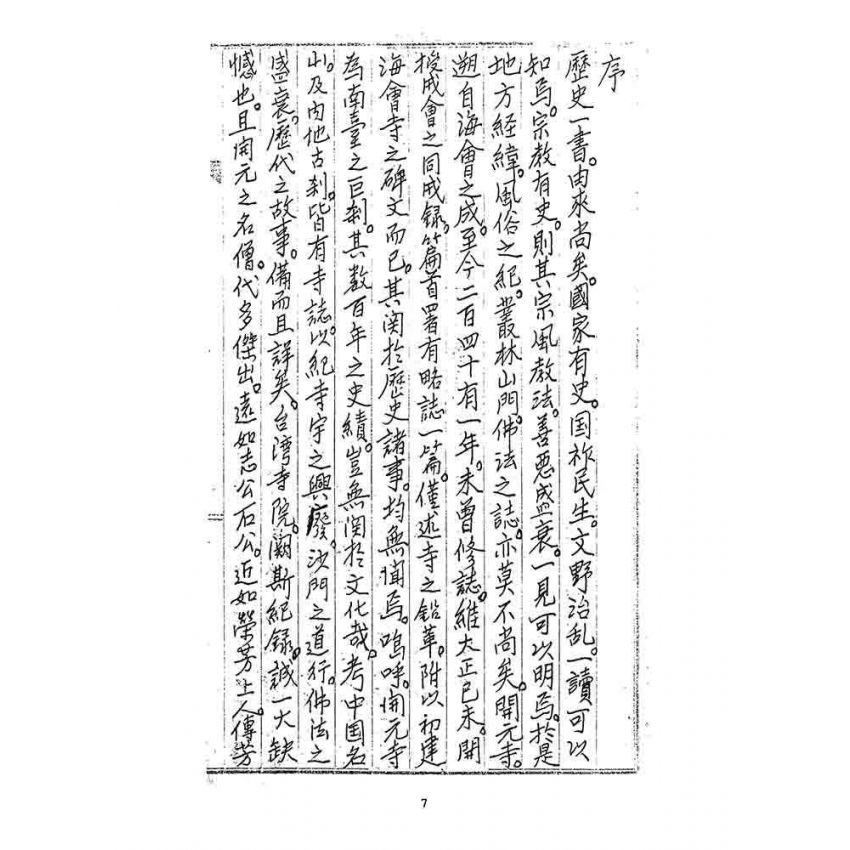 序
歷史一書。由來尚矣。國家有史。国祚民生。文野治乱。一讀可以
知焉。宗教有史。則其宗風教法。善惡盛衰。一見可以明焉。於是
地方経緯。風俗之紀。叢林山門。佛法之誌。亦莫不尚矣。開元寺。
朔自海會之成。至今二百四十有一年。未曾修誌。維大正己未。開
授戒會之同戒録。篇首署有略誌一篇。僅述寺之鉛革。附以初建
海會寺之碑文而已。其関於歷史諸事。均無聞焉。嗚呼。開元寺
為南臺之巨刹。其数百年之史績。豈無関於文化哉。考中国名
山。及内地古刹。皆有寺誌。以紀寺宇之興廢。沙門之道行。佛法之
盛衰。歷代之故事。備而且詳矣。台湾寺院。闕斯紀録。誠一大缺
憾也。且開元之名僧。代多傑出。遠如志公石公。近如榮芳上人。傳芳
7